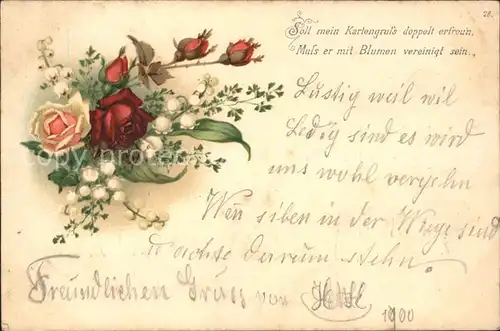 28.
Soll mein Kartengruß doppelt erfreun,
Muß er mit Blumen vereinigt sein.
Lustig weil wil
Ledig sind es wird
uns wohl vergehn
Wen siben in der Wiege sind
u achte darum stehn.
Freundlichen Gruss von
1900